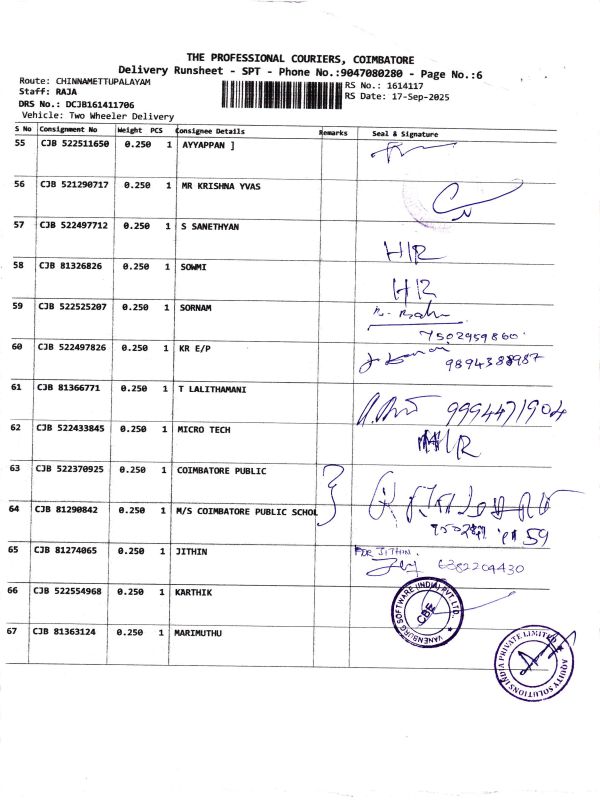 THE PROFESSIONAL COURIERS, COIMBATORE
Delivery Runsheet - SPT - Phone No.:9047080280 - Page No.:6
Route: CHINNAMETTUPALAYAM
Staff: RAJA
DRS No.: DCJB161411706
Vehicle: Two Wheeler Delivery
RS No.: 1614117
RS Date: 17-Sep-2025
S No Consignment No Weight PCS Consignee Details Remarks Seal & Signature
55 CJB 522511650 0.250 1 AYYAPPAN ]
56 CJB 521290717 0.250 1 MR KRISHNA YVAS
57 CJB 522497712 0.250 1 S SANETHYAN H/R
58 CJB 81326826 0.250 1 SOWMI H/R
59 CJB 522525207 0.250 1 SORNAM
7502959860
60 CJB 522497826 0.250 1 KR E/P 9894388987
61 CJB 81366771 0.250 1 T LALITHAMANI 9994471904
62 CJB 522433845 0.250 1 MICRO TECH H/R
63 CJB 522370925 0.250 1 COIMBATORE PUBLIC
64 CJB 81290842 0.250 1 M/S COIMBATORE PUBLIC SCHOL
65 CJB 81274065 0.250 1 JITHIN FOR JITHIN.
6382204430
66 CJB 522554968 0.250 1 KARTHIK
VANENBURG SOFTWARE (INDIA) PVT. LTD.
CBE
67 CJB 81363124 0.250 1 MARIMUTHU
AQUITY SOLUTIONS INDIA PRIVATE LIMITED